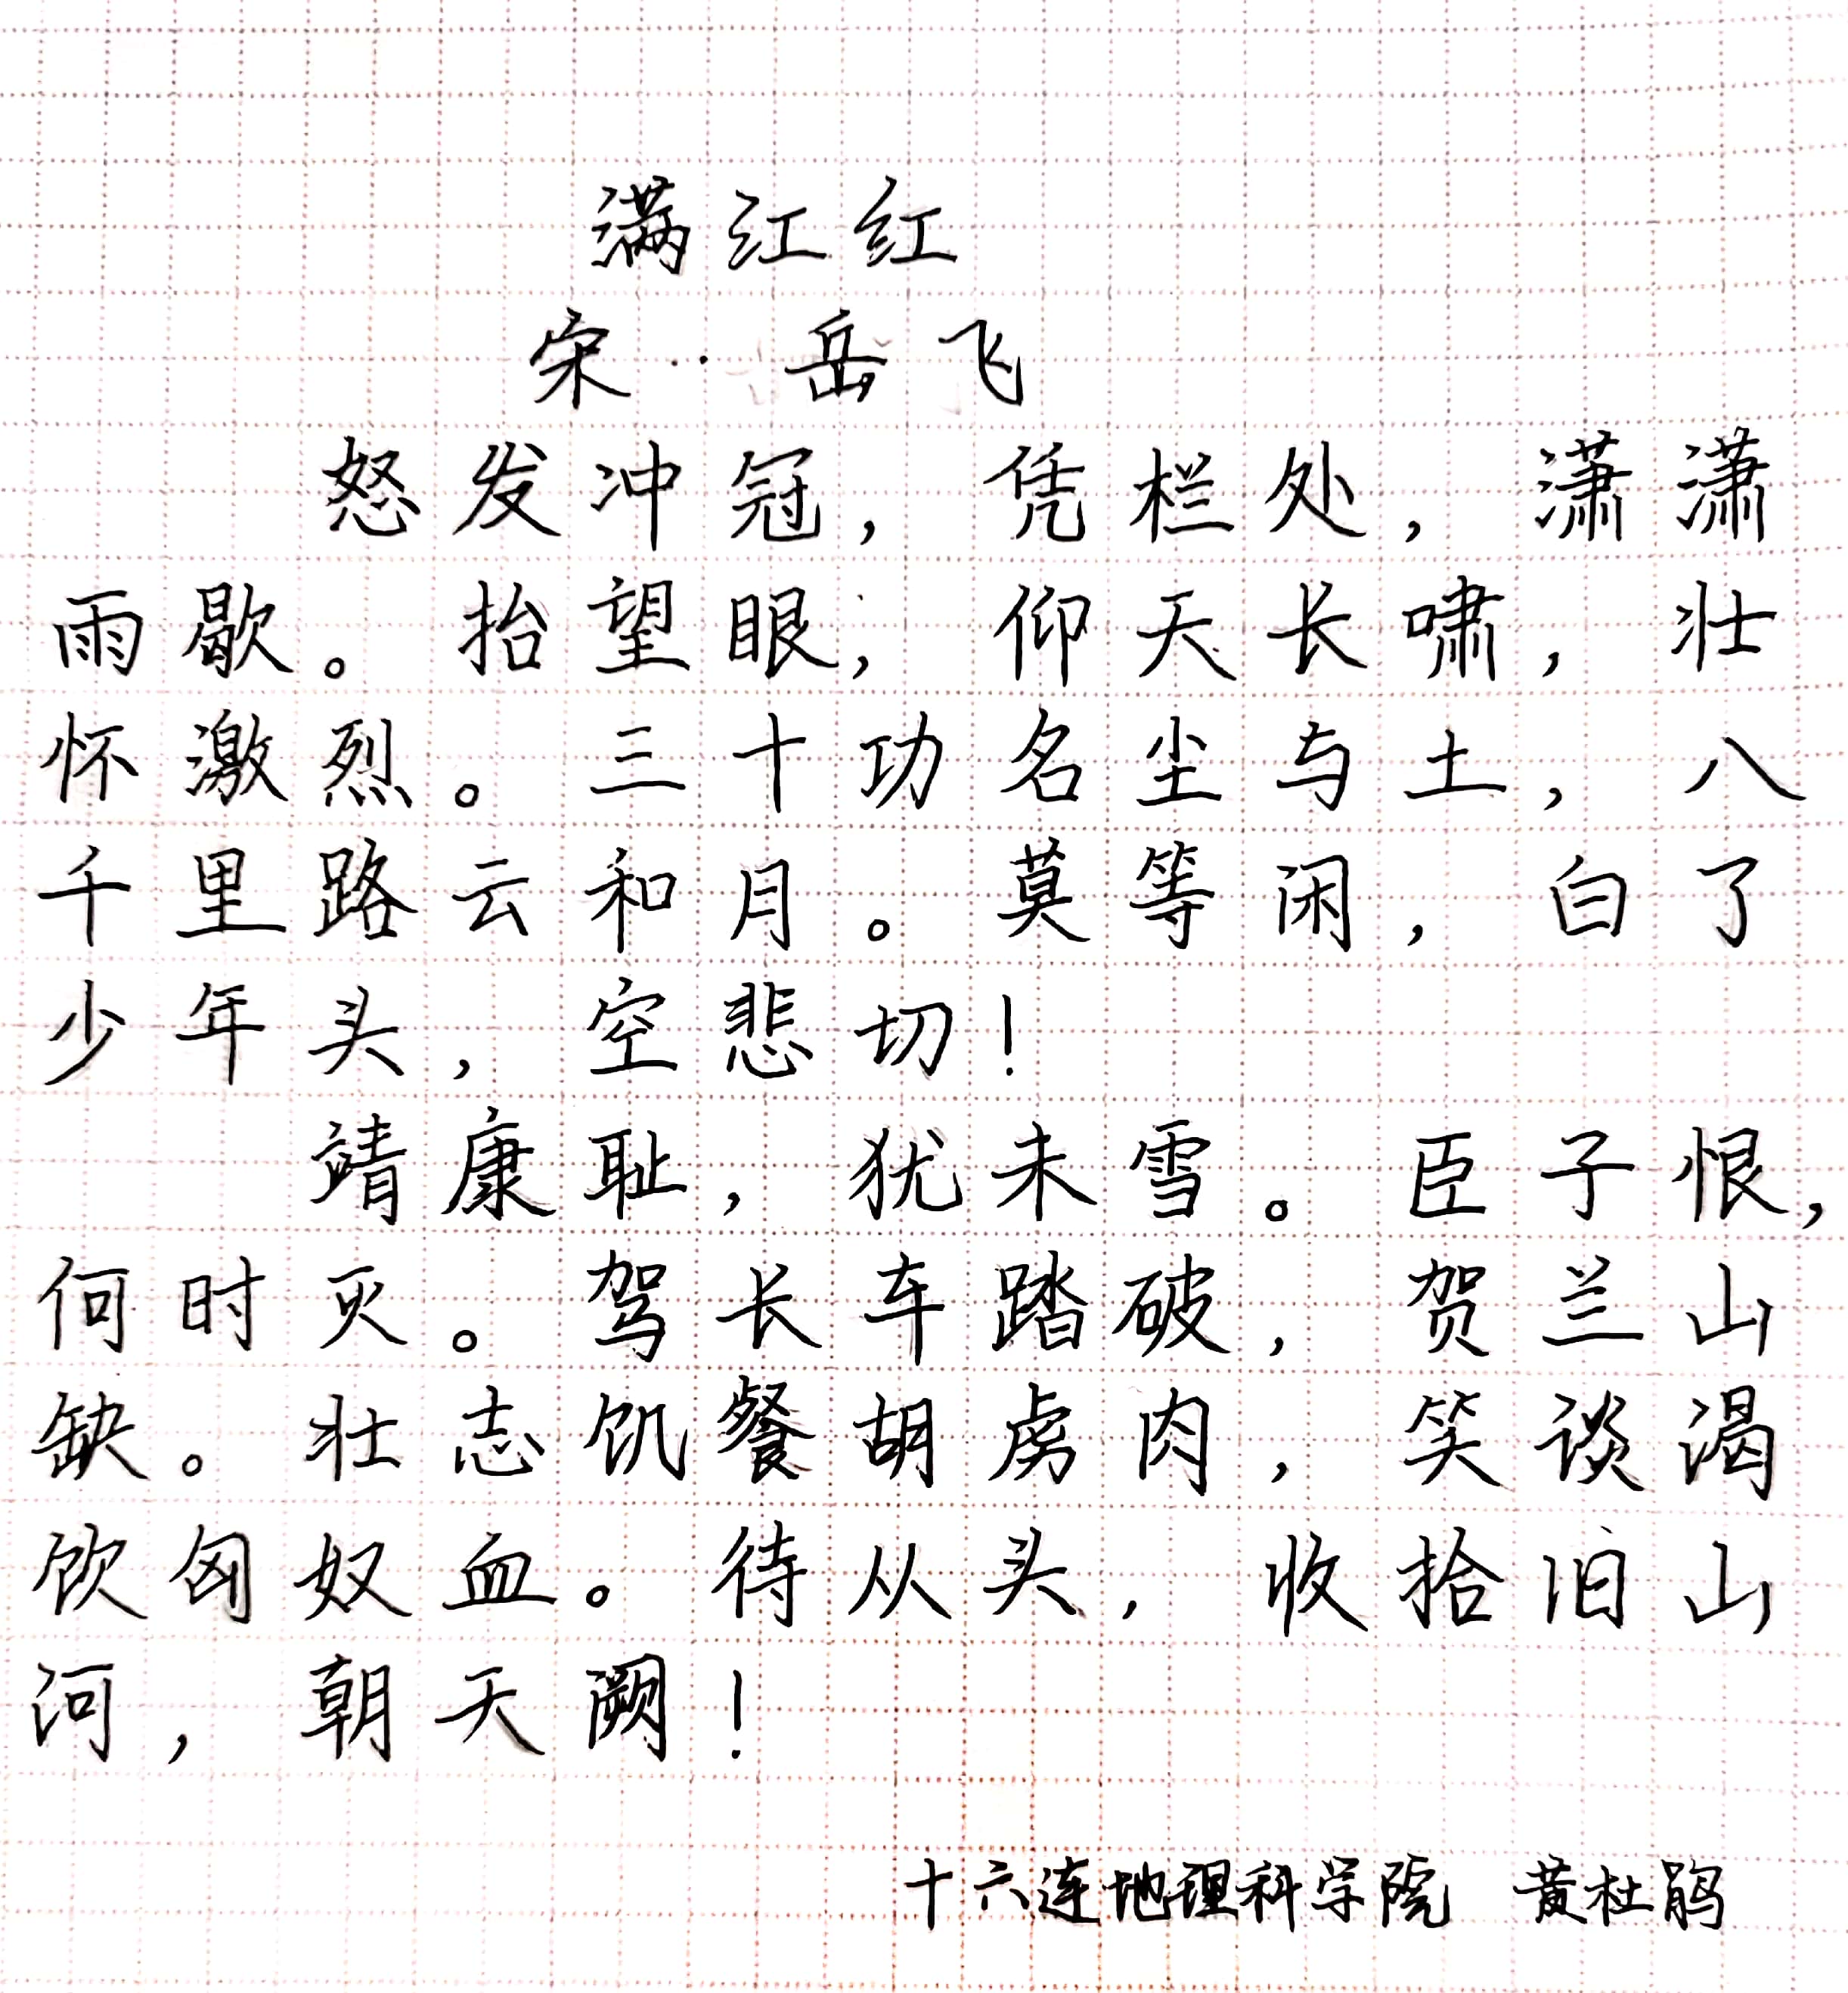 满江红
宋··岳飞
怒发冲冠，凭栏处，潇潇
雨歇。抬望眼，仰天长啸，壮
怀激烈。三十功名尘与土，八
千里路云和月。莫等闲，白了
少年头，空悲切！
靖康耻，犹未雪。臣子恨，
何时灭。驾长车踏破，贺兰山
缺。壮志饥餐胡虏肉，笑谈渴
饮匈奴血。待从头，收拾旧山
河，朝天阙！
十六连地理科学院 黄杜鹃